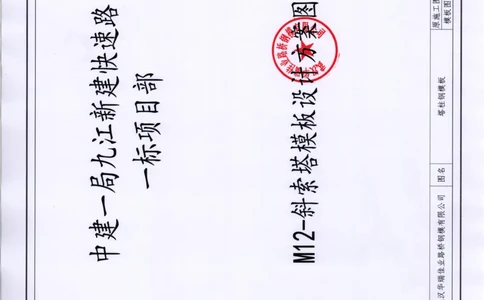 中建一局九江新建快速路
一标项目部
M12-斜索塔模板设计方案图
原施工图
模板图
塔柱钢模板
图名
汉华瑞佳业路桥钢模有限公司